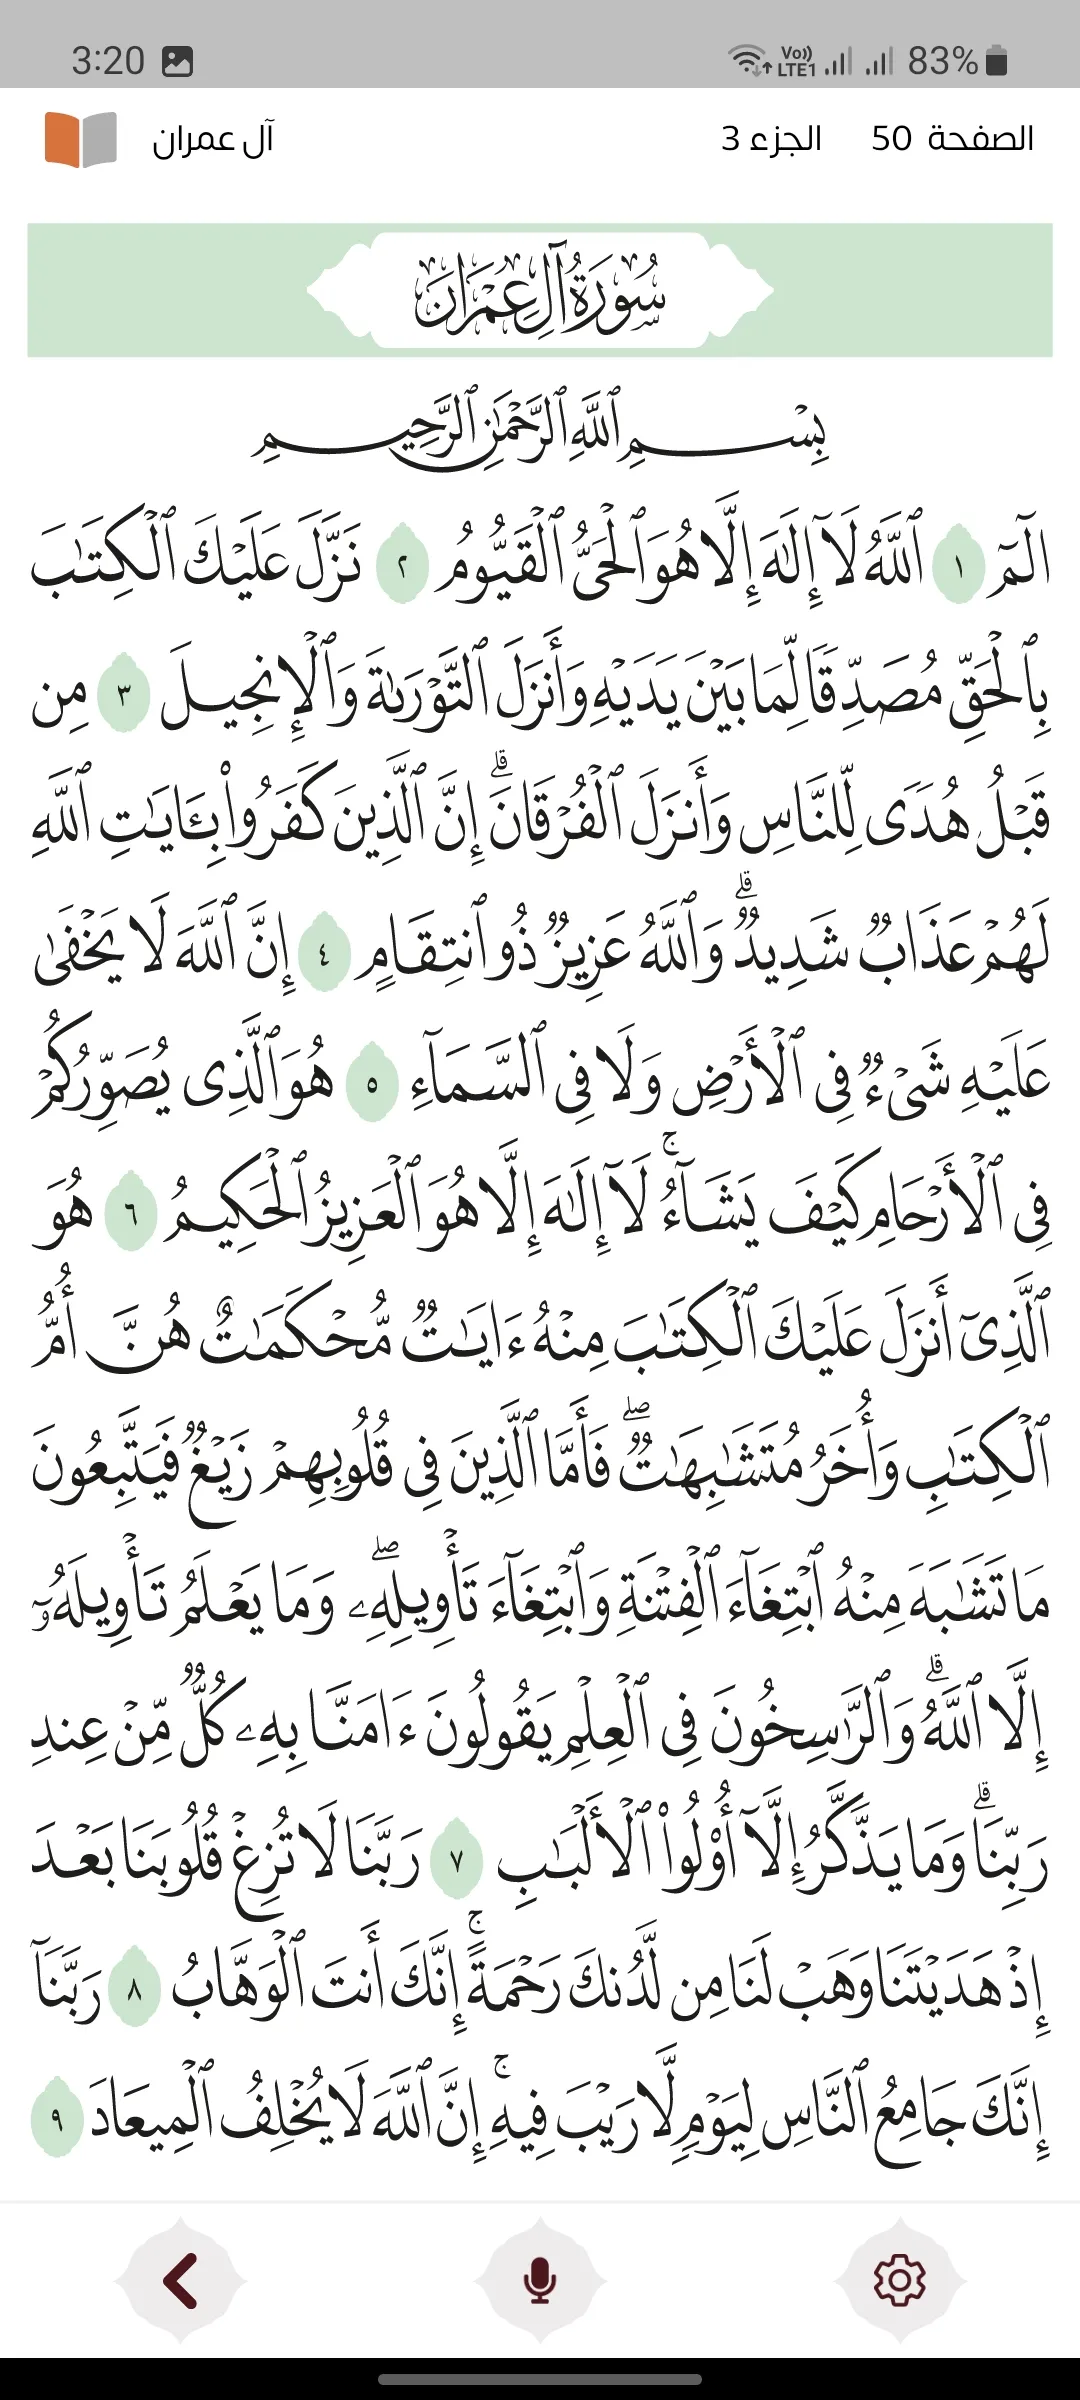 3:20 Vo)) LTE1 83%
الصفحة 50 الجزء 3 آل عمران
سُورَةُ آلِ عِمْرَان
بِسْمِ ٱللَّهِ ٱلرَّحْمَٰنِ ٱلرَّحِيمِ
الٓمٓ ١ ٱللَّهُ لَآ إِلَٰهَ إِلَّا هُوَ ٱلْحَىُّ ٱلْقَيُّومُ ٢ نَزَّلَ عَلَيْكَ ٱلْكِتَٰبَ
بِٱلْحَقِّ مُصَدِّقًا لِّمَا بَيْنَ يَدَيْهِ وَأَنزَلَ ٱلتَّوْرَىٰةَ وَٱلْإِنجِيلَ ٣ مِن
قَبْلُ هُدًى لِّلنَّاسِ وَأَنزَلَ ٱلْفُرْقَانَ ۗ إِنَّ ٱلَّذِينَ كَفَرُوا۟ بِـَٔايَٰتِ ٱللَّهِ
لَهُمْ عَذَابٌ شَدِيدٌ ۗ وَٱللَّهُ عَزِيزٌ ذُو ٱنتِقَامٍ ٤ إِنَّ ٱللَّهَ لَا يَخْفَىٰ
عَلَيْهِ شَىْءٌ فِى ٱلْأَرْضِ وَلَا فِى ٱلسَّمَآءِ ٥ هُوَ ٱلَّذِى يُصَوِّرُكُمْ
فِى ٱلْأَرْحَامِ كَيْفَ يَشَآءُ ۚ لَآ إِلَٰهَ إِلَّا هُوَ ٱلْعَزِيزُ ٱلْحَكِيمُ ٦ هُوَ
ٱلَّذِىٓ أَنزَلَ عَلَيْكَ ٱلْكِتَٰبَ مِنْهُ ءَايَٰتٌ مُّحْكَمَٰتٌ هُنَّ أُمُّ
ٱلْكِتَٰبِ وَأُخَرُ مُتَشَٰبِهَٰتٌ ۖ فَأَمَّا ٱلَّذِينَ فِى قُلُوبِهِمْ زَيْغٌ فَيَتَّبِعُونَ
مَا تَشَٰبَهَ مِنْهُ ٱبْتِغَآءَ ٱلْفِتْنَةِ وَٱبْتِغَآءَ تَأْوِيلِهِۦ ۖ وَمَا يَعْلَمُ تَأْوِيلَهُۥٓ
إِلَّا ٱللَّهُ ۗ وَٱلرَّٰسِخُونَ فِى ٱلْعِلْمِ يَقُولُونَ ءَامَنَّا بِهِۦ كُلٌّ مِّنْ عِندِ
رَبِّنَا ۗ وَمَا يَذَّكَّرُ إِلَّآ أُو۟لُوا۟ ٱلْأَلْبَٰبِ ٧ رَبَّنَا لَا تُزِغْ قُلُوبَنَا بَعْدَ
إِذْ هَدَيْتَنَا وَهَبْ لَنَا مِن لَّدُنكَ رَحْمَةً ۚ إِنَّكَ أَنتَ ٱلْوَهَّابُ ٨ رَبَّنَآ
إِنَّكَ جَامِعُ ٱلنَّاسِ لِيَوْمٍ لَّا رَيْبَ فِيهِ ۚ إِنَّ ٱللَّهَ لَا يُخْلِفُ ٱلْمِيعَادَ ٩